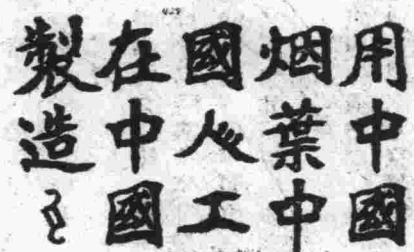 用中國
烟葉中
國人工
在中國
製造